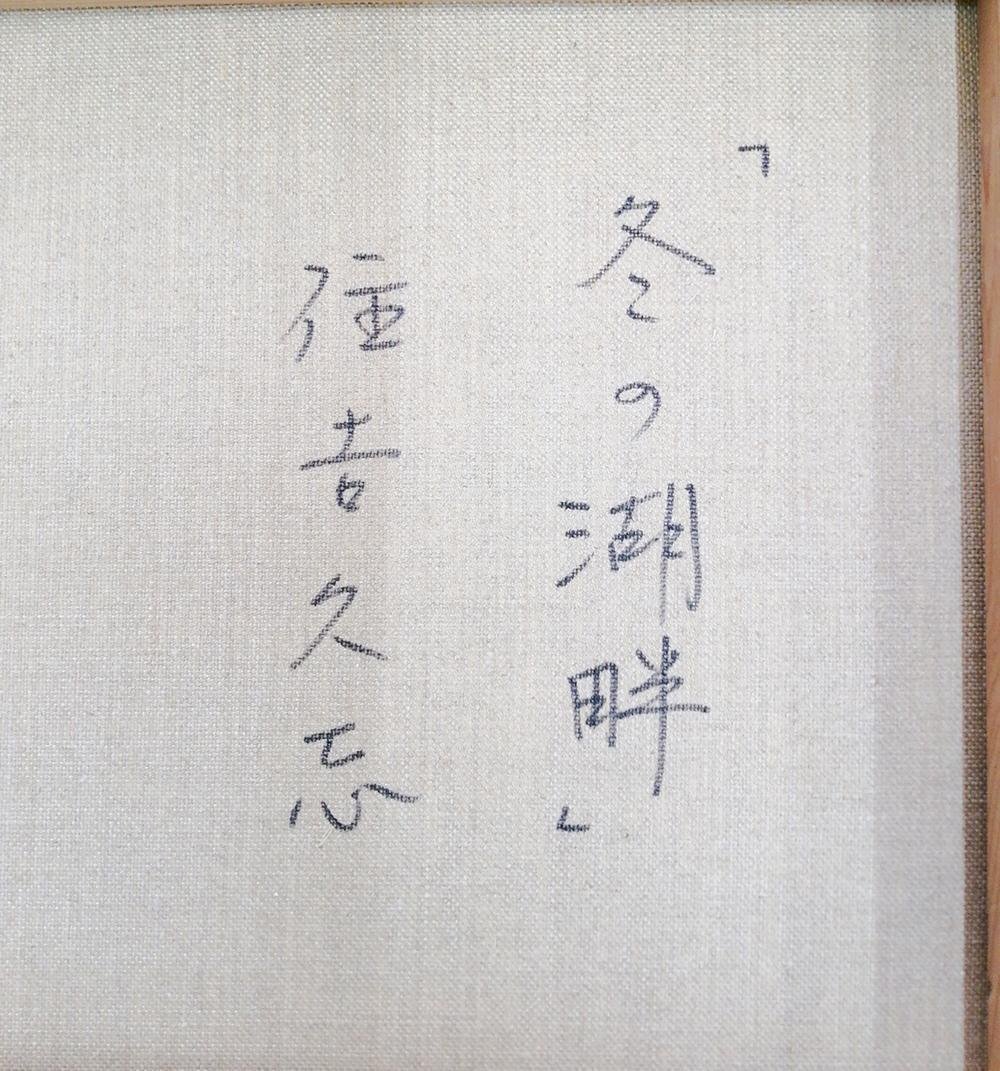 「冬の湖畔」
住吉久志